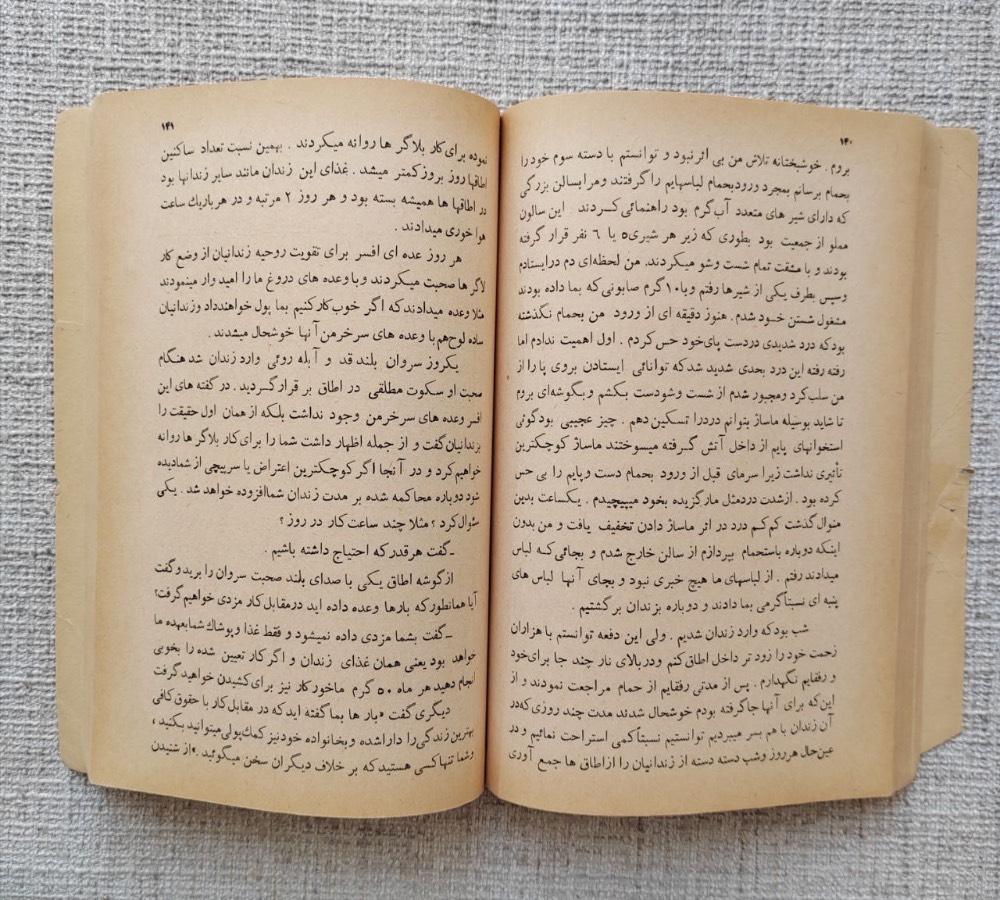 ۱۴۰
بروم . خوشبختانه تلاش من بی اثر نبود و توانستم با دسته سوم خود را
بحمام برسانم بمجرد ورود بحمام لباسهایم را گرفتند و مرا بسالن بزرگی
که دارای شیر های متعدد آب گرم بود راهنمائی کردند . این سالون
مملو از جمعیت بود بطوری که زیر هر شیری ۵ یا ۶ نفر قرار گرفته
بودند و با مشقت تمام شست وشو میکردند. من لحظه‌ای دم در ایستادم
وسپس بطرف یکی از شیرها رفتم و با ۱۰ گرم صابونی که بما داده بودند
مشغول شستن خود شدم . هنوز دقیقه ای از ورود من بحمام نگذشته
بود که درد شدیدی در دست پای خود حس کردم . اول اهمیت ندادم اما
رفته رفته این درد بحدی شدید شد که توانائی ایستادن بروی پا را از
من سلب کرد و مجبور شدم از شست وشو دست بکشم و بگوشه‌ای بروم
تا شاید بوسیله ماساژ بتوانم درد را تسکین دهم . چیز عجیبی بود گوئی
استخوانهای پایم از داخل آتش گرفته میسوختند ماساژ کوچکترین
تأثیری نداشت زیرا سرمای قبل از ورود بحمام دست وپایم را بی حس
کرده بود . از شدت درد مثل مار گزیده بخود میپیچیدم . یکساعت بدین
منوال گذشت کم کم درد در اثر ماساژ دادن تخفیف یافت و من بدون
اینکه دوباره باستحمام بپردازم از سالن خارج شدم و بجائی که لباس
میدادند رفتم . از لباسهای ما هیچ خبری نبود و بجای آنها لباس های
پنبه ای نسبتاً گرمی بما دادند و دوباره بزندان برگشتیم .
شب بود که وارد زندان شدیم . ولی این دفعه توانستم با هزاران
زحمت خود را زود تر داخل اطاق کنم و در بالای نار چند جا برای خود
و رفقایم نگهدارم . پس از مدتی رفقایم از حمام مراجعت نمودند و از
این که برای آنها جا گرفته بودم خوشحال شدند مدت چند روزی که در
آن زندان با هم بسر میبردیم توانستیم نسبتاً کمی استراحت نمائیم و در
عین حال هر روز وشب دسته دسته از زندانیان را از اطاق ها جمع آوری
۱۴۱
نموده برای کار بلاگر ها روانه میکردند . بهمین نسبت تعداد ساکنین
اطاقها روز بروز کمتر میشد . غذای این زندان مانند سایر زندانها بود
در اطاقها ها همیشه بسته بود و هر روز ۲ مرتبه و در هر بار یک ساعت
هوا خوری میدادند .
هر روز عده ای افسر برای تقویت روحیه زندانیان از وضع کار
لاگر ها صحبت میکردند و با وعده های دروغ ما را امید وار مینمودند
مثلا وعده میدادند که اگر خوب کار کنیم بما پول خواهند داد و زندانیان
ساده لوح هم با وعده های سرخرمن آنها خوشحال میشدند .
یکروز سروان بلند قد و آبله روئی وارد زندان شد هنگام
صحبت او سکوت مطلقی در اطاق بر قرار گردید . در گفته های این
افسر وعده های سرخرمن وجود نداشت بلکه از همان اول حقیقت را
بزندانیان گفت و از جمله اظهار داشت شما را برای کار بلاگر ها روانه
خواهیم کرد و در آنجا اگر کوچکترین اعتراض یا سرپیچی از شما دیده
شود دوباره محاکمه شده بر مدت زندان شما افزوده خواهد شد . یکی
سئوال کرد ؟ مثلا چند ساعت کار در روز ؟
ـ گفت هر قدر که احتیاج داشته باشیم .
از گوشه اطاق یکی با صدای بلند صحبت سروان را برید و گفت
آیا همانطور که بارها وعده داده اید در مقابل کار مزدی خواهیم گرفت؟
ـ گفت بشما مزدی داده نمیشود و فقط غذا و پوشاك شما بعهده ما
خواهد بود یعنی همان غذای زندان و اگر کار تعیین شده را بخوبی
انجام دهید هر ماه ۵۰ گرم ماخورکار نیز برای کشیدن خواهید گرفت
دیگری گفت «بار ها بما گفته اید که در مقابل کار با حقوق کافی
بهترین زندگی را دارا شده و بخانواده خود نیز کمك پولی میتوانید بکنید ،
و شما تنها کسی هستید که بر خلاف دیگران سخن میگوئید .» از شنیدن